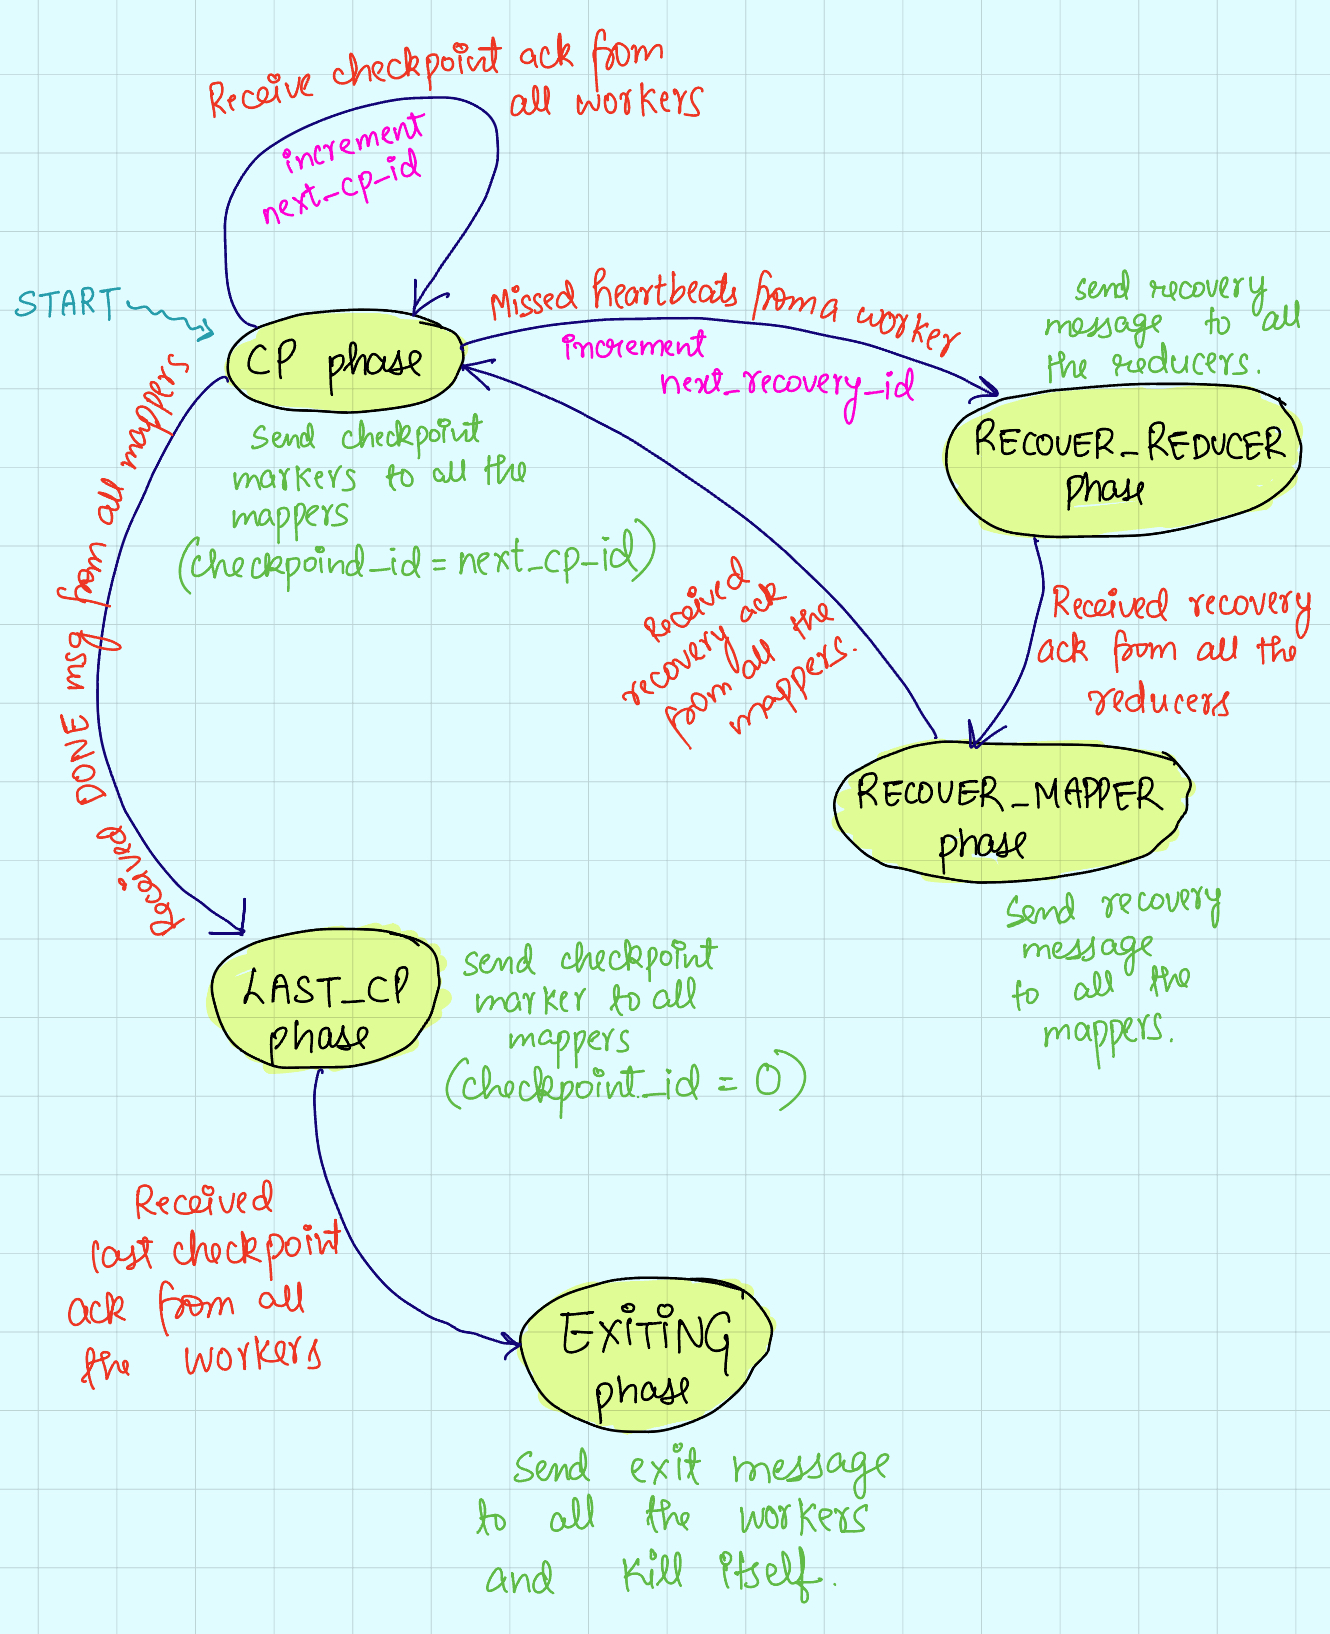 Receive checkpoint ack from
all workers
increment
next_cp_id
START
CP phase
Send checkpoint
markers to all the
mappers
(checkpoind_id = next_cp_id)
Missed heartbeats from a worker
increment
next_recovery_id
send recovery
message to all
the reducers.
RECOVER_REDUCER
phase
Received recovery
ack from all the
reducers
Received
recovery ack
from all the
mappers.
RECOVER_MAPPER
phase
Send recovery
message
to all the
mappers.
Received DONE msg from all mappers
LAST_CP
phase
send checkpoint
marker to all
mappers
(checkpoint_id = 0)
Received
last checkpoint
ack from all
the workers
EXITING
phase
Send exit message
to all the workers
and kill itself.